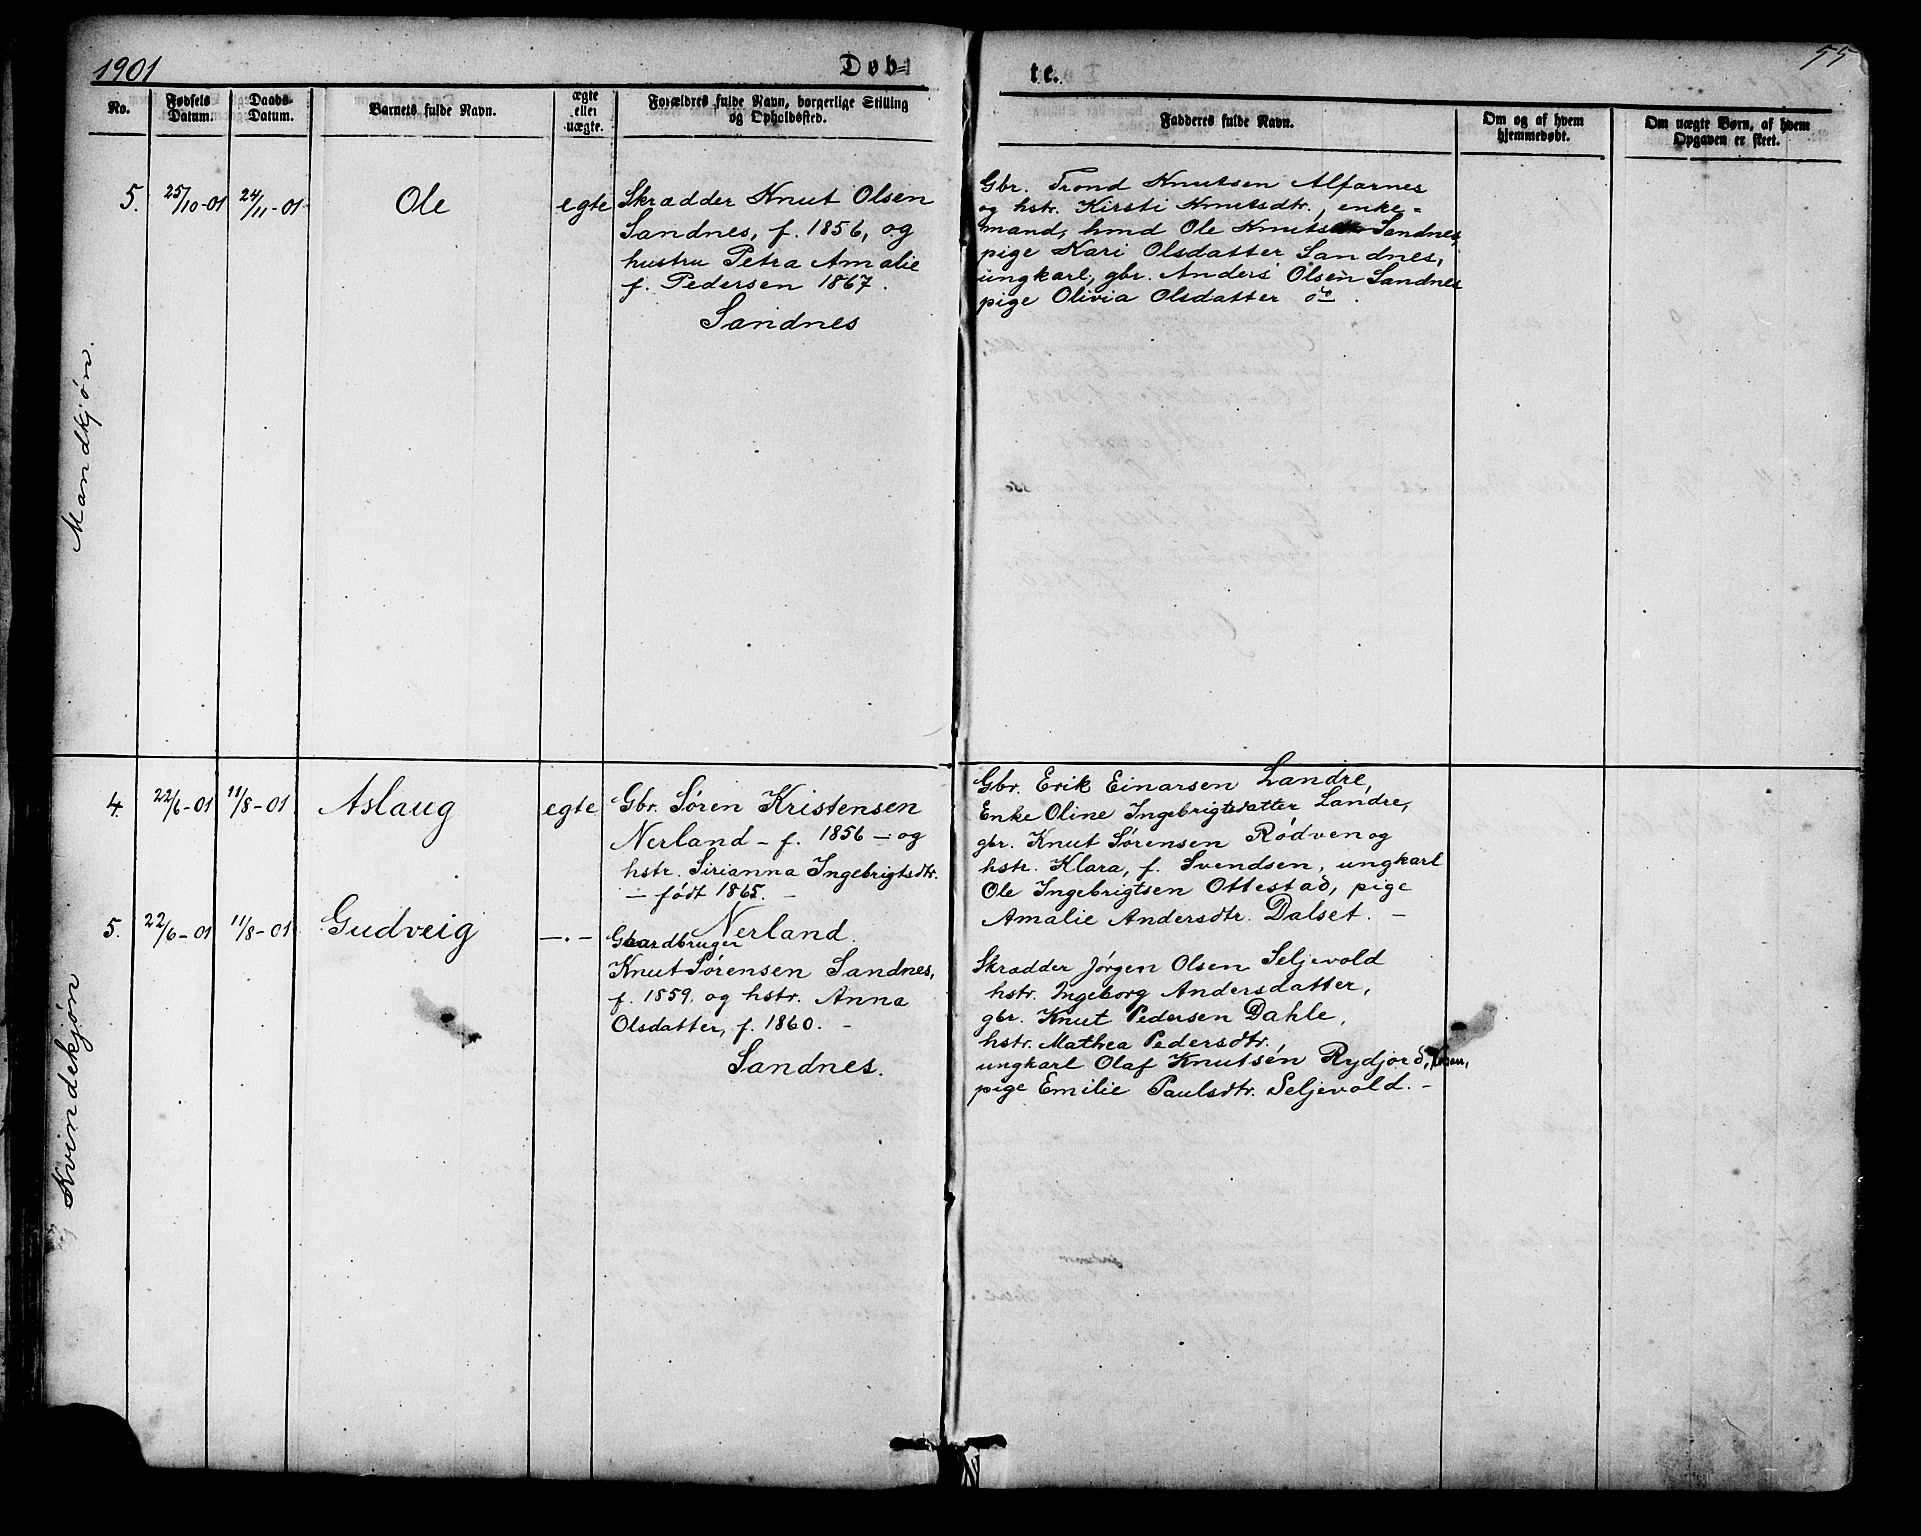 1901
Døb=
te.
55
No.
Fødsels
Datum.
Daabs-
Datum.
Barnets fulde Navn.
ægte
eller
uægte.
Forældres fulde Navn, borgerlige Stilling
og Opholdssted.
Fadderes fulde Navn.
Om og af hvem
hjemmedøbt.
Om uægte Børn, af hvem
Opgaven er skeet.
Mandkjøn.
5.
25/10-01
24/11-01
Ole
egte
Skrædder Knut Olsen
Sandnes, f. 1856, og
hustru Petra Amalie
f. Pedersen 1867.
Sandnes
Gbr. Trond Knutsen Alfarnes
og hstr. Kirsti Knutsdtr., enke=
mand, hmd Ole Knutsen Sandnes,
pige Kari Olsdatter Sandnes,
ungkarl, gbr. Anders Olsen Sandnes
pige Olivia Olsdatter do.
Kvindekjøn
4.
22/6-01
11/8-01
Aslaug
egte
Gbr. Søren Kristensen
Nerland - f. 1856 - og
hstr. Sirianna Ingebrigtsdtr.
- født 1865. -
Nerland.
Gbr. Erik Einarsen Landre,
Enke Oline Ingebrigtsdatter Landre,
gbr. Knut Sørensen Rødven og
hstr. Klara, f. Svendsen, ungkarl
Ole Ingebrigtsen Ottestad, pige
Amalie Andersdtr. Dalset. -
5.
22/6-01
11/8-01
Gudveig
- . -
Gaardbruger
Knut Sørensen Sandnes,
f. 1859. og hstr. Anna
Olsdatter, f. 1860. -
Sandnes.
Skrædder Jørgen Olsen Seljevold
hstr. Ingeborg Andersdatter,
gbr. Knut Pedersen Dahle,
hstr. Mathea Pedersdtr.
ungkarl Olaf Knutsen Rydjord,
pige Emilie Paulsdtr. Seljevold. -